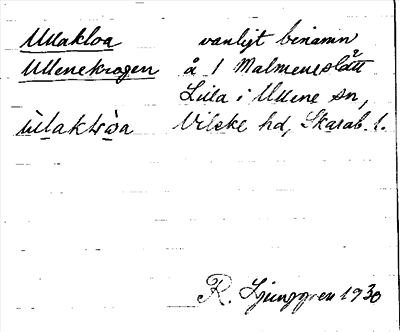 Ullakloa vanligt binamn
Ullenekrogen å 1 Malmeneslätt
Lilla i Ullene sn,
ùlaktròa Vilske hd, Skarab. l.
R. Ljunggren 1930